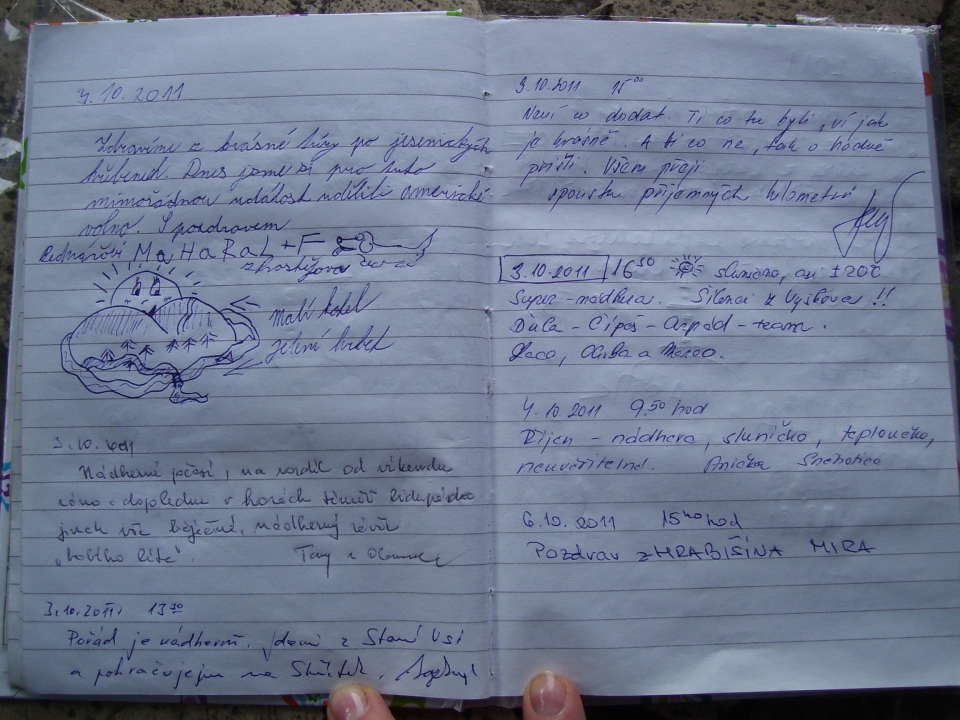 3.10.2011
Zdravíme z krásné túry po jesenických
hřebenech. Dnes jsme si pro tuto
mimořádnou událost udělili americké
volno. S pozdravem
MaHaRaL+F
malí kotel
jelení hřbet
3.10.
Nádherné počasí, na rozdíl od víkendu
ráno a dopoledne v horách téměř liduprázdno
jinak vše báječné, nádherný závěr
"babího léta".
3.10.2011 13
Pořád je nádherně, jdeme z Staré Vsi
a pokračujeme na
3.10.2011 15⁰⁰
Není co dodat. Ti co tu byli, ví jak
je krásně. A ti co ne, tak o hodně
přišli. Všem přeji
spoustu příjemných kilometrů
3.10.2011 16³⁰ slunečno, ±20°C
Super-nádhera. Silenci z Vyškova!!
Ďula-Cipós-Arpád-team.
a
4.10.2011 9.⁵⁰ hod
Říjen - nádhera, sluníčko, teploučko,
neuvěřitelné. Anička
6.10.2011 15 hod
Pozdrav z HRABIŠÍNA MIRA